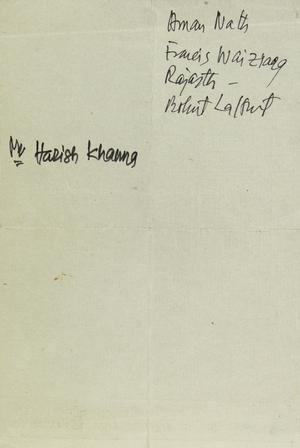 Aman Nath
Francis Wacziarg
Rajasth –
Robert Laffont
Mr Harish Khanna